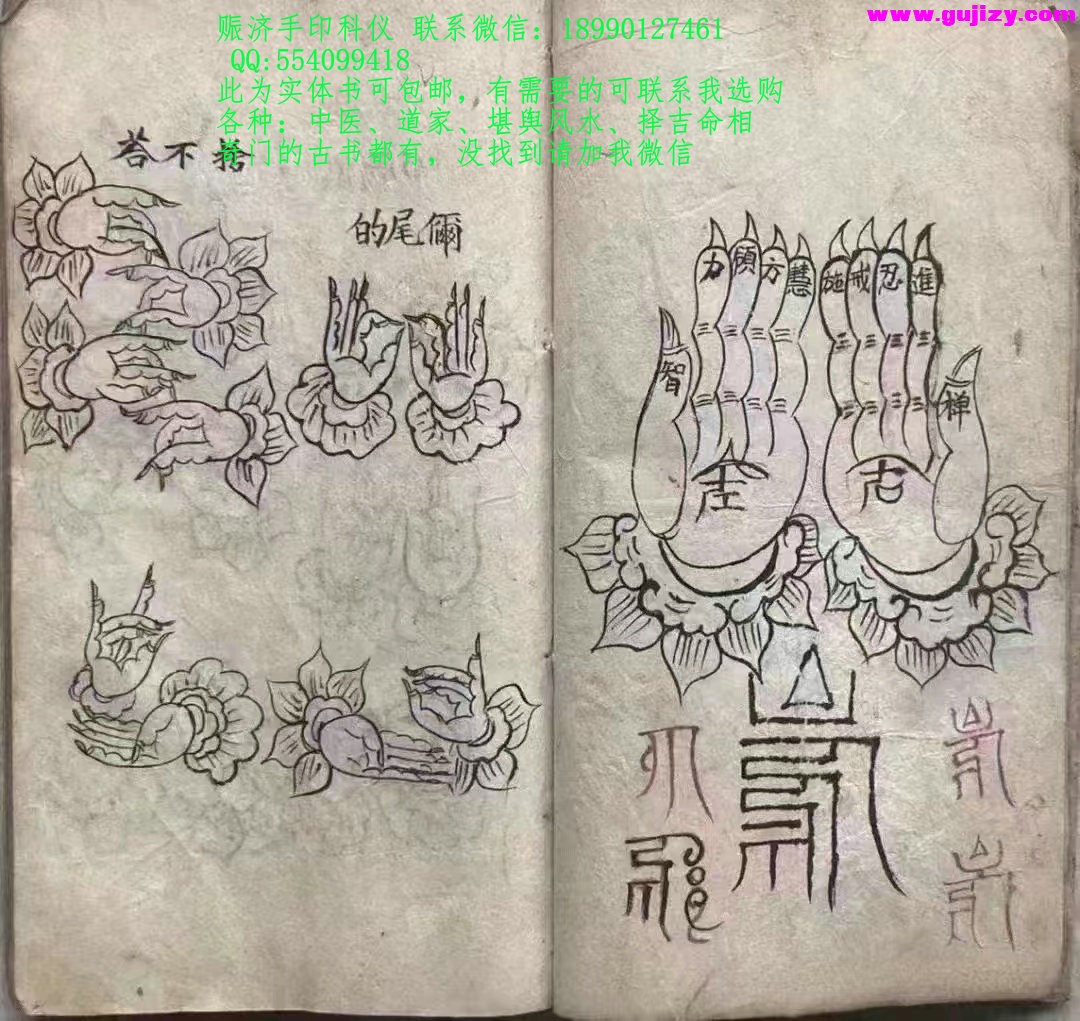 www.gujizy.com
赈济手印科仪 联系微信：18990127461
QQ:554099418
此为实体书可包邮，有需要的可联系我选购
各种：中医、道家、堪舆风水、择吉命相
奇门的古书都有，没找到请加我微信
荅不捨
的尾儞
力 願 方 慧 施 戒 忍 進
智 禅
左 右